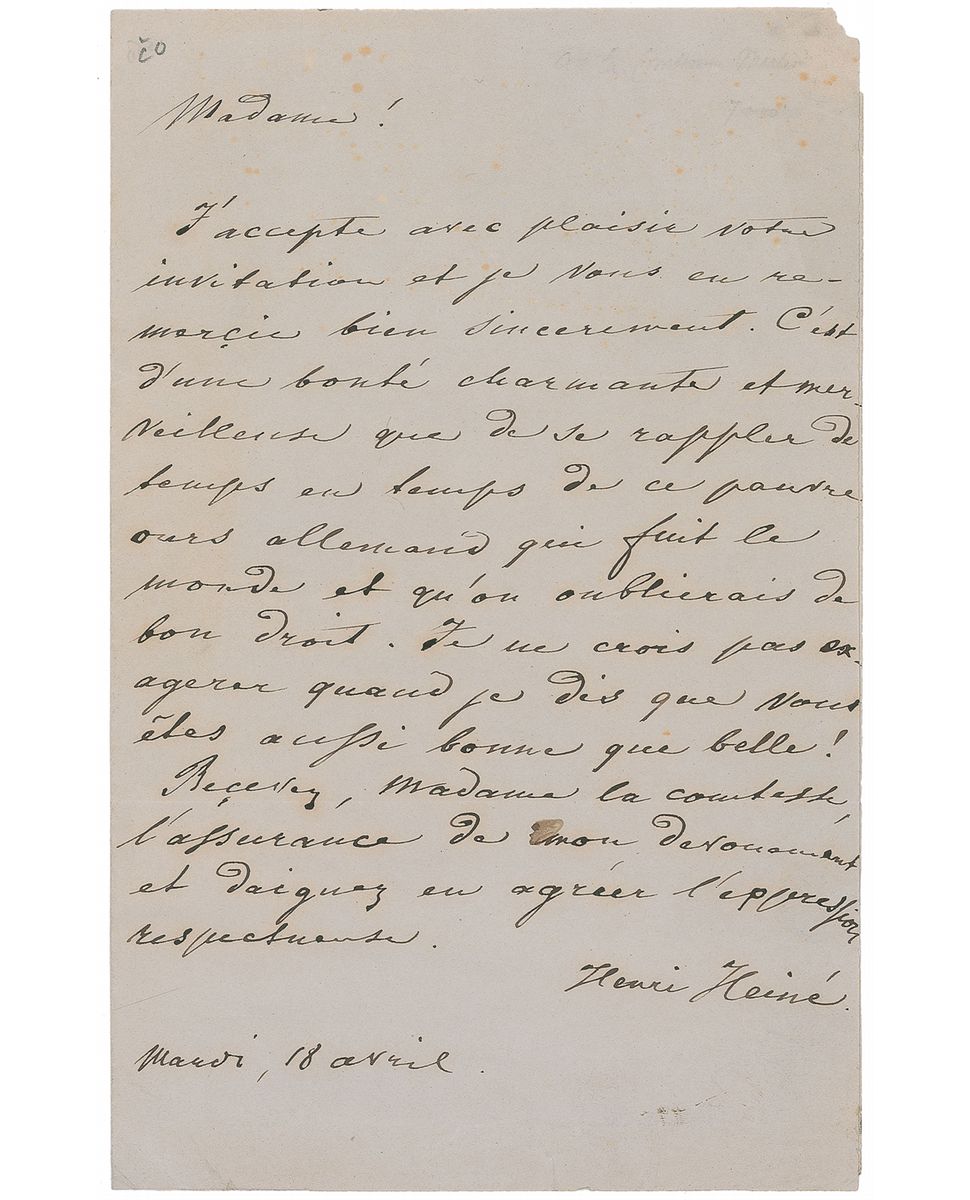 20
Madame!
J'accepte avec plaisir votre
invitation et je vous en re-
merçie bien sincerement. C'est
d'une bonté charmante et mer-
veilleuse que de se rappler de
temps en temps de ce pauvre
ours allemand qui fuit le
monde et qu'on oublierais de
bon droit. Je ne crois pas ex-
agerer quand je dis que vous
êtes aussi bonne que belle!
Reçevez, Madame la comtesse,
l'assurance de mon devouement
et daignez en agréer l'expression
respectueuse.
Henri Heiné.
Mardi, 18 avril.